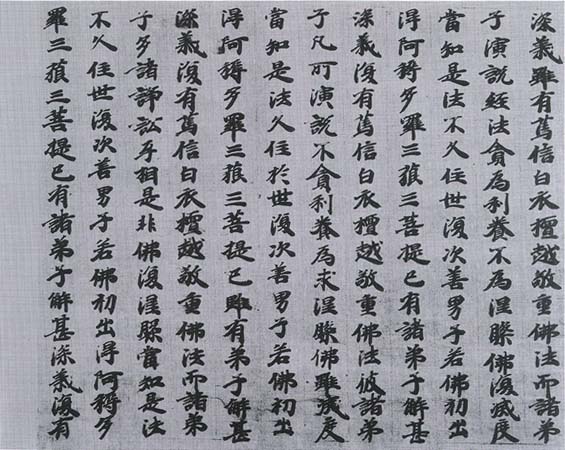 深義雖有篤信白衣檀越敬重佛法而諸弟
子演說經法貪為利養不為涅槃佛復滅度
當知是法不久住世復次善男子若佛初出
得阿耨多羅三藐三菩提已有諸弟子解甚
深義復有篤信白衣檀越敬重佛法彼諸弟
子凡所演說不貪利養為求涅槃佛雖滅度
當知是法久住於世復次善男子若佛初出
得阿耨多羅三藐三菩提已雖有弟子解甚
深義復有篤信白衣檀越敬重佛法而諸弟
子多諸諍訟互相是非佛復涅槃當知是法
不久住世復次善男子若佛初出得阿耨多
羅三藐三菩提已有諸弟子解甚深義復有